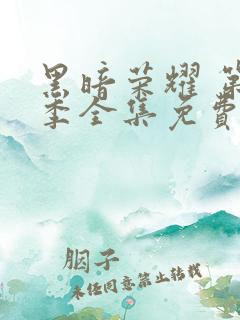 黑暗荣耀 第
季全集免费
胭子
未经同意禁止转载